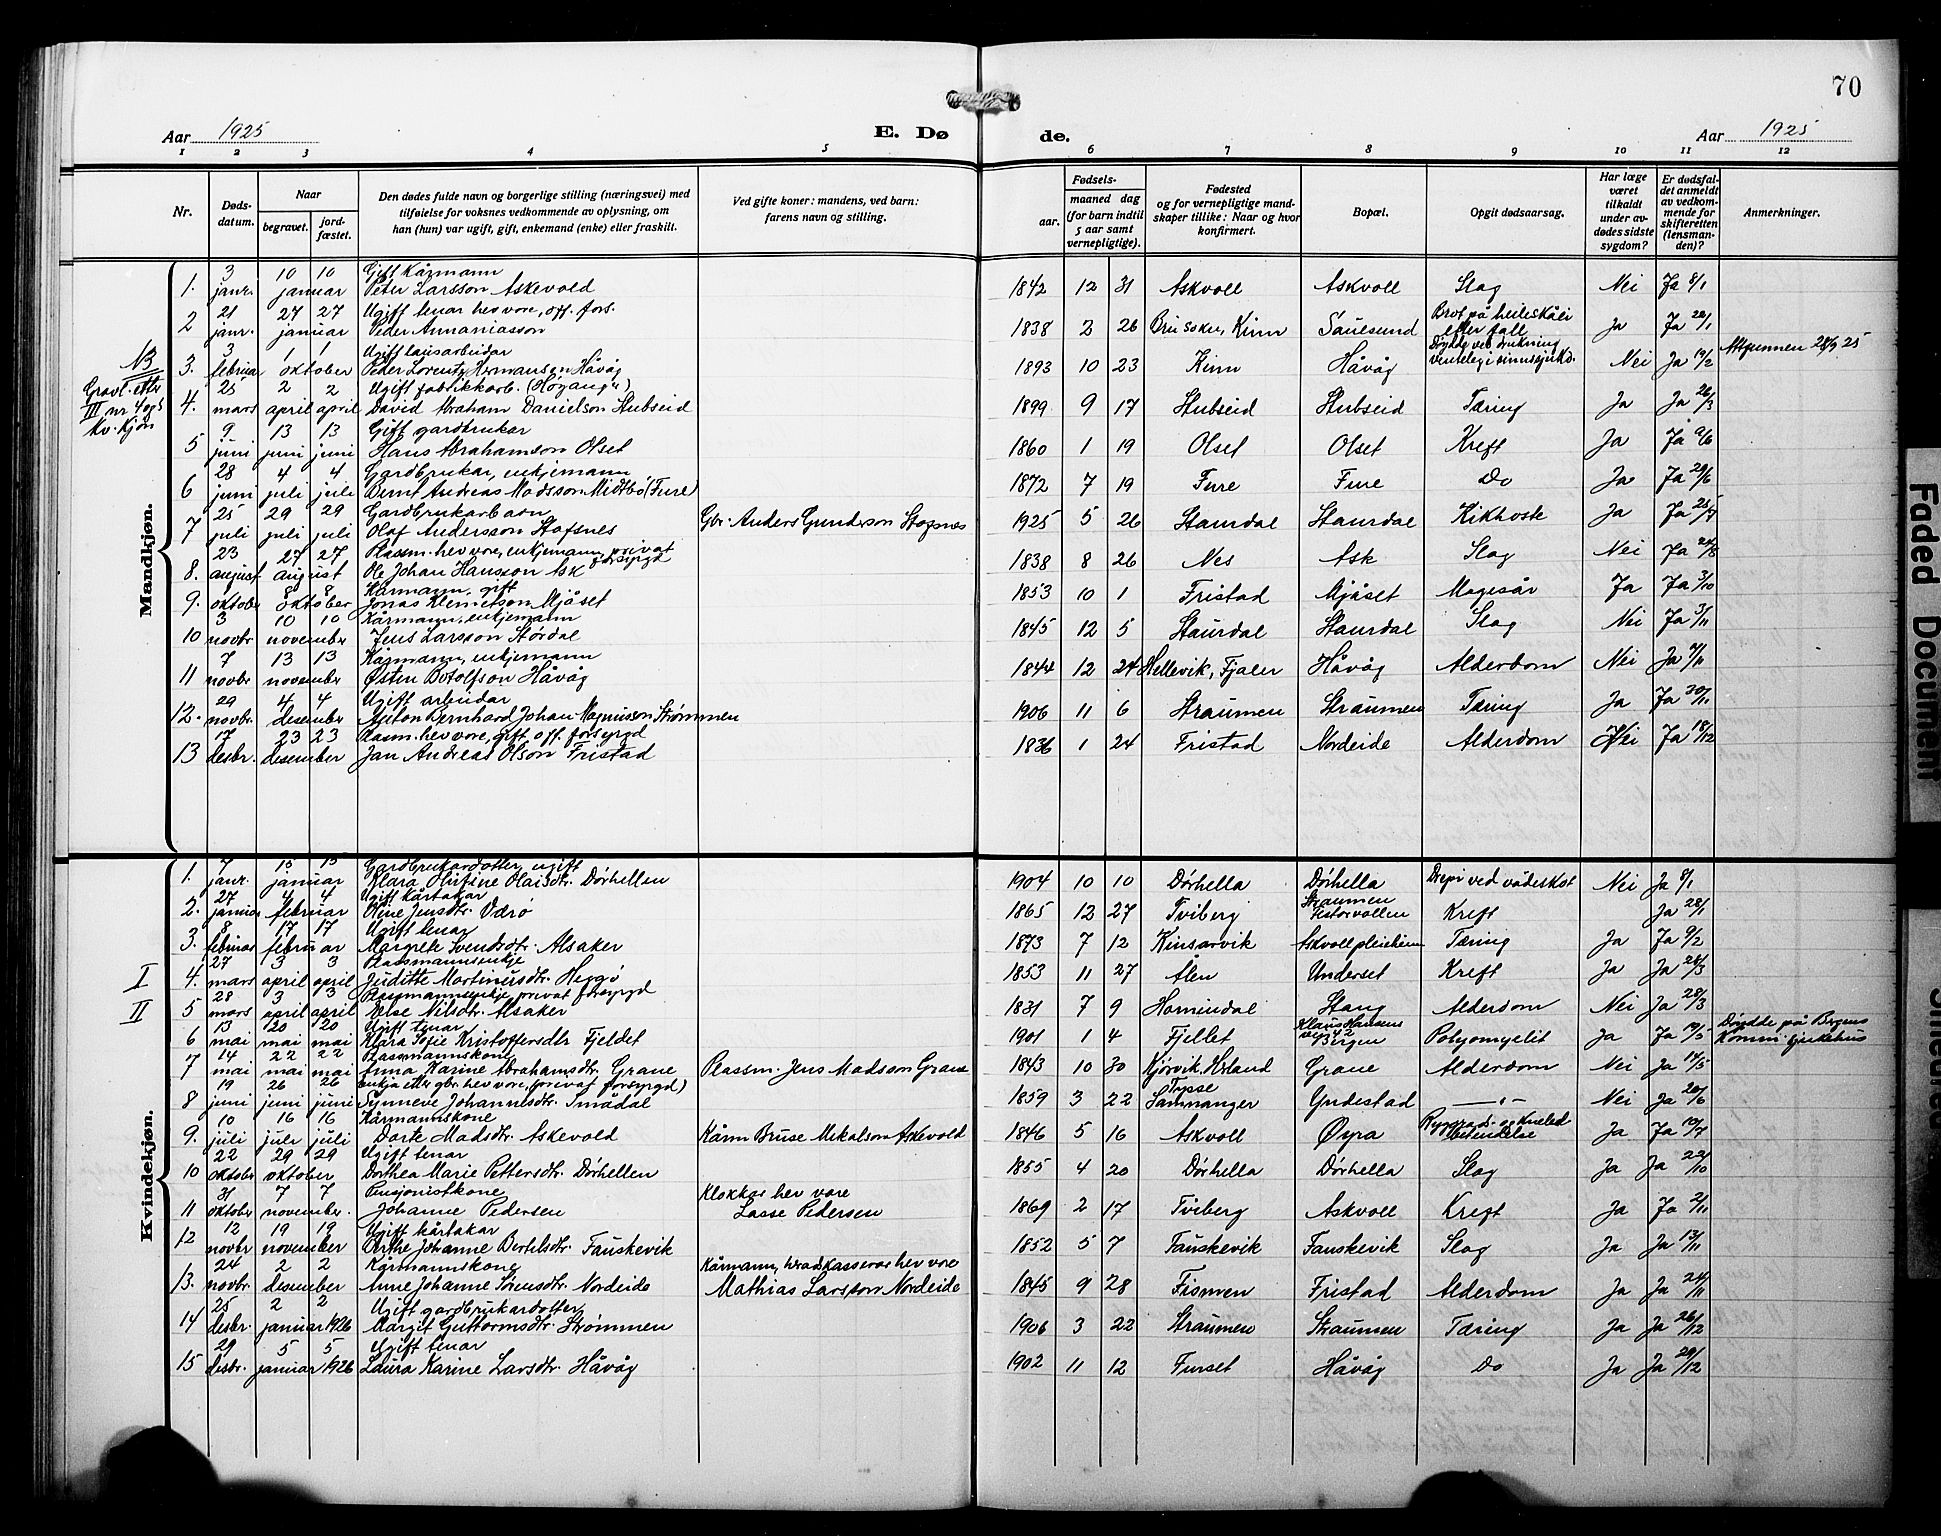 70
Aar 1925
E. Dø
de.
Aar 1925
1 2 3 4 5 6 7 8 9 10 11 12
Nr.
Døds-
datum.
Naar
begravet.
jord-
fæstet.
Den dødes fulde navn og borgerlige stilling (næringsvei) med
tilføielse for voksnes vedkommende av oplysning, om
han (hun) var ugift, gift, enkemand (enke) eller fraskilt.
Ved gifte koner: mandens, ved barn:
farens navn og stilling.
Fødsels-
aar.
maaned dag
(for barn indtil
5 aar samt
vernepligtige).
Fødested
og for vernepligtige mand-
skaper tillike: Naar og hvor
konfirmert.
Bopæl.
Opgit dødsaarsag.
Har læge
været
tilkaldt
under av-
dødes sidste
sygdom?
Er dødsfal-
det anmeldt
av vedkom-
mende for
skifteretten
(lensman-
den)?
Anmerkninger.
Mandkjøn.
NB
Gravl. etter
III nr 4 og 5
kv. kjøn
3 10 10 Gift Kårmann
1. janr. januar Peter Larsson Askevold 1842 12 31 Askvoll Askvoll Slag Nei Ja 8/1
21 27 27 Ugift tenar hev vore, off. fors.
2 janr. januar Peder Annaniasson 1838 2 26 Kinn Sauesund Brot på heileskåli etter fall Ja Ja 22/1
3 1 1 Ugift lausarbeidar
3. februar oktober Peder Lorentz Hermanson Håvåg 1893 10 23 Kinn Håvåg Døydde ved drukning venteleg i sinnssjukd. Nei Ja 19/2 Attfunnen 28/9 25
25 2 2 Ugift fabrikkarb. (Høyang")
4. mars april april David Abraham Danielson Stubseid 1899 9 17 Stubseid Stubseid Tæring Ja Ja 26/3
9 13 13 Gift gardbrukar
5 juni juni juni Hans Abrahamson Olset 1860 1 19 Olset Olset Kreft Ja Ja 9/6
28 4 4 Gardbrukar, enkjemann
6 juni juli juli Bernt Andreas Madsson Midtbø (Fure) 1872 7 19 Fure Fure Do Ja Ja 29/6
25 29 29 Gardbrukarbarn
7 juli juli juli Olaf Andersson Stafsnes Gbr. Anders Gunderson Stagsnes 1925 5 26 Staurdal Staurdal Kikhoste Ja Ja 25/7
23 27 27 Plassm. hev vore, enkjemann, privat forsyrgd
8. august august Ole Johan Hansson Ask 1838 8 26 Nes Ask Slag Nei Ja 24/8
8 8 Kårmann, gift
9. oktober oktober Jonas Klemetson Mjåset 1853 10 1 Fristad Mjåset Magesår Ja Ja 3/10
3 10 10 Kårmann, enkjemann
10 novbr november Jens Larsson Størdal 1845 12 5 Staurdal Staurdal Slag Nei Ja 3/11
7 13 13 Kårmann, enkjemann
11 novbr november Østen Botolfson Håvåg 1844 12 24 Hellevik, Fjaler Håvåg Alderdom Nei Ja 7/11
29 4 4 Ugift arbeidar
12. novbr. desember Anton Bernhard Johan Magnusson Strømmen 1906 11 6 Straumen Straumen Tæring Ja Ja 30/11
17 23 23 Plassm. hev vore, gift, off. forsyrgd
13 desbr. desember Jan Andreas Olson Fristad 1836 1 24 Fristad Nordeide Alderdom Nei Ja 18/12
Kvindekjøn.
7 15 15 Gardbrukardotter, ugift
1. janr. januar Klara Olufine Olaisdtr. Dørhellen 1904 10 10 Dørhella Dørhella Drepi ved vådeskot Nei Ja 8/1
27 4 4 Ugift kårtakar
2. januar februar Oline Jensdtr. Værø 1865 12 27 Tviberg Straumen Kreft Ja 28/1
8 17 17 Ugift tenar
3. februar februar Margrete Svendsdtr. Alsaker 1873 7 12 Kinsarvik Askvoll pleieheim Tæring Ja Ja 9/2
I
27 3 3 Plassmannsenkje
4. mars april april Juditte Martinusdtr. Heggø 1853 11 27 Ålen Underset Kreft Ja Ja 28/3
II
28 3 3 Plassmannsenkje, privat forsyrgd
5 mars april april Else Nilsdtr. Alsaker 1831 7 9 Homindal Stang Alderdom Nei Ja 28/3
13 20 20 Ugift tenar
6 mai mai mai Klara Sofie Kristoffersdtr Fjeldet 1901 1 4 Fjellet Klaus Hansens veg 42 Bergen Polyomyelit Ja Ja 19/5 Døydde på Bergens Komm. sjukehus
14 22 22 Plassmannskone
7 mai mai mai Anna Karine Abrahamsdtr. Grane Plassm. Jens Madsson Grane 1843 10 30 Kjørvik, Hyland Grane Alderdom Nei Ja 14/5
19 26 26 enkja etter gbr. hev vore, (privat forsyrgd)
8 juni juni juni Synneve Johannesdtr. Smådal 1859 3 22 Tysse Samnanger Yndestad —"— Nei Ja 20/6
10 16 16 Kårmannskone
9. juli juli juli Dorte Madsdtr. Askevold Kårm Bruse Mikalson Askevold 1846 5 16 Askvoll Øyra Ryggrads- og kneled betendelse Ja Ja 10/7
22 29 29 Ugift tenar
10 oktobr oktober Dorthea Marie Pettersdtr. Dørhellen 1855 4 20 Dørhella Dørhella Slag Ja Ja 22/10
31 7 7 Pensjonistkone
11 oktober november. Johanne Pedersen Klokkar hev vore Lasse Pedersen 1869 2 17 Tviberg Askvoll Kreft Ja Ja 2/11
12 19 19 Ugift kårtakar
12 novbr november Berthe Johanne Bertelsdtr. Fauskevik 1852 5 7 Fauskevik Fauskevik Slag Ja Ja 13/11
24 2 2 Kårmannskone
13. novbr. desember Anne Johanne Sørensdtr. Nordeide Kårmann, heradskasserar hev vore Mathias Larsson Nordeide 1845 9 28 Fismen Fristad Alderdom Ja Ja 24/11
25 2 2 Ugift gardbrukardotter
14 desbr. januar 1926 Margit Guttormsdtr. Strømmen 1906 3 22 Straumen Straumen Tæring Ja Ja 26/12
29 5 5 Ugift tenar
15 desbr. januar 1926 Laura Karine Larsdtr. Håvåg 1902 11 12 Furset Håvåg Do Ja Ja 29/12
Faded Document